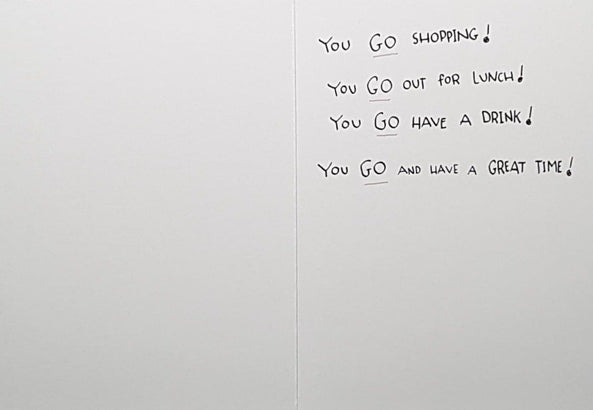 YOU GO SHOPPING!
YOU GO OUT FOR LUNCH!
YOU GO HAVE A DRINK!
YOU GO AND HAVE A GREAT TIME!